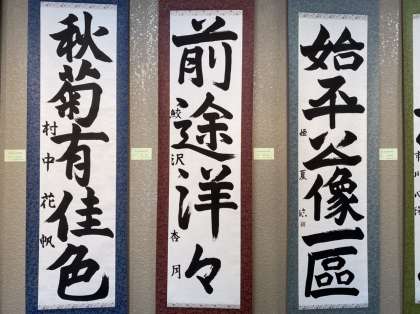 始平公像一區
前途洋々
鮫沢杏月
秋菊有佳色
村中花帆